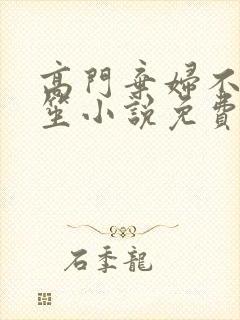 高門棄婦不
笙小說免費
石季龍